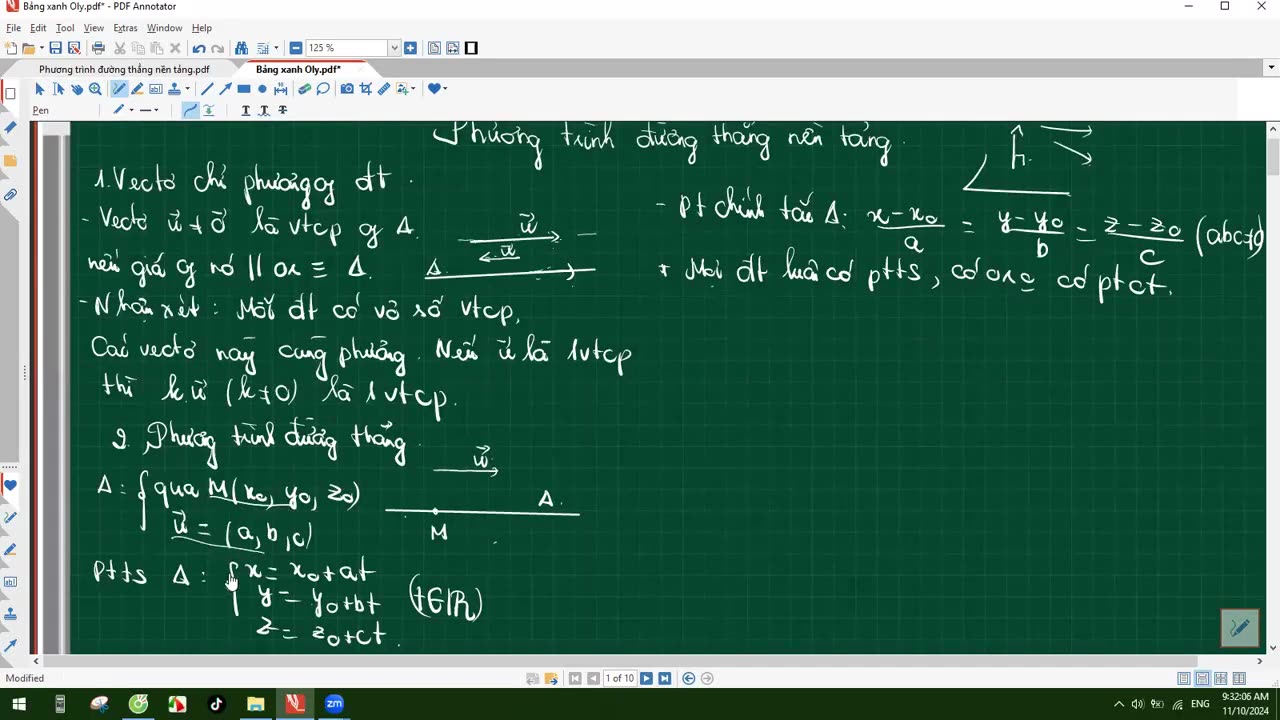 Bảng xanh Oly.pdf* - PDF Annotator
File Edit Tool View Extras Window Help
125 %
Phương trình đường thẳng nền tảng.pdf
Bảng xanh Oly.pdf*
Pen
Phương trình đường thẳng nền tảng.
n⃗
1. Vectơ chỉ phương of đt.
- Vectơ u⃗ ≠ 0⃗ là vtcp of Δ
nếu giá of nó // or ≡ Δ.
u⃗
u⃗
Δ
- Nhận xét: Mỗi đt có vô số vtcp,
Các vectơ này cùng phương. Nếu u⃗ là 1 vtcp
thì k.u⃗ (k≠0) là 1 vtcp.
2. Phương trình đường thẳng.
Δ: { qua M(x₀, y₀, z₀)
u⃗ = (a, b, c)
u⃗
Δ.
M
ptts Δ: { x = x₀+at
y = y₀+bt (t∈ℝ)
z = z₀+ct.
- pt chính tắc Δ: (x-x₀)/a = (y-y₀)/b = (z-z₀)/c (abc≠0)
+ Mọi đt luôn có ptts, có or c̲ có ptct.
1 of 10
Modified
ENG
9:32:06 AM
11/10/2024
zm